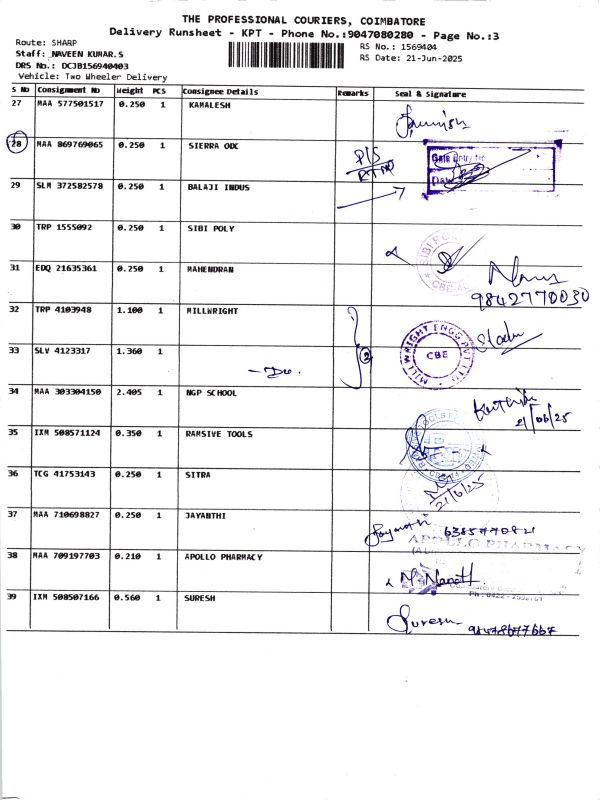 THE PROFESSIONAL COURIERS, COIMBATORE
Delivery Runsheet - KPT - Phone No.:9047080280 - Page No.:3
Route: SHARP
RS No.: 1569404
Staff: NAVEEN KUMAR.S
RS Date: 21-Jun-2025
DRS No.: DCJB156940403
Vehicle: Two Wheeler Delivery
S No Consignment No Weight PCS Consignee Details Remarks Seal & Signature
27 MAA 577501517 0.250 1 KAMALESH
28 MAA 869769065 0.250 1 SIERRA ODC
29 SLM 372582578 0.250 1 BALAJI INDUS
30 TRP 1555092 0.250 1 SIBI POLY
31 EDQ 21635361 0.250 1 MAHENDRAN
9842770030
32 TRP 4103948 1.100 1 MILLWRIGHT
MILLWRIGHT ENGG PVT LTD
CBE
33 SLV 4123317 1.360 1 - Do.
2
34 MAA 303304150 2.405 1 NGP SCHOOL
21/06/25
35 IXM 508571124 0.350 1 RAMSIVE TOOLS
36 TCG 41753143 0.250 1 SITRA
21/6/25
37 MAA 710698827 0.250 1 JAYANTHI
38 MAA 709197703 0.210 1 APOLLO PHARMACY
APOLLO PHARMACY
39 IXM 508507166 0.560 1 SURESH
Suresh